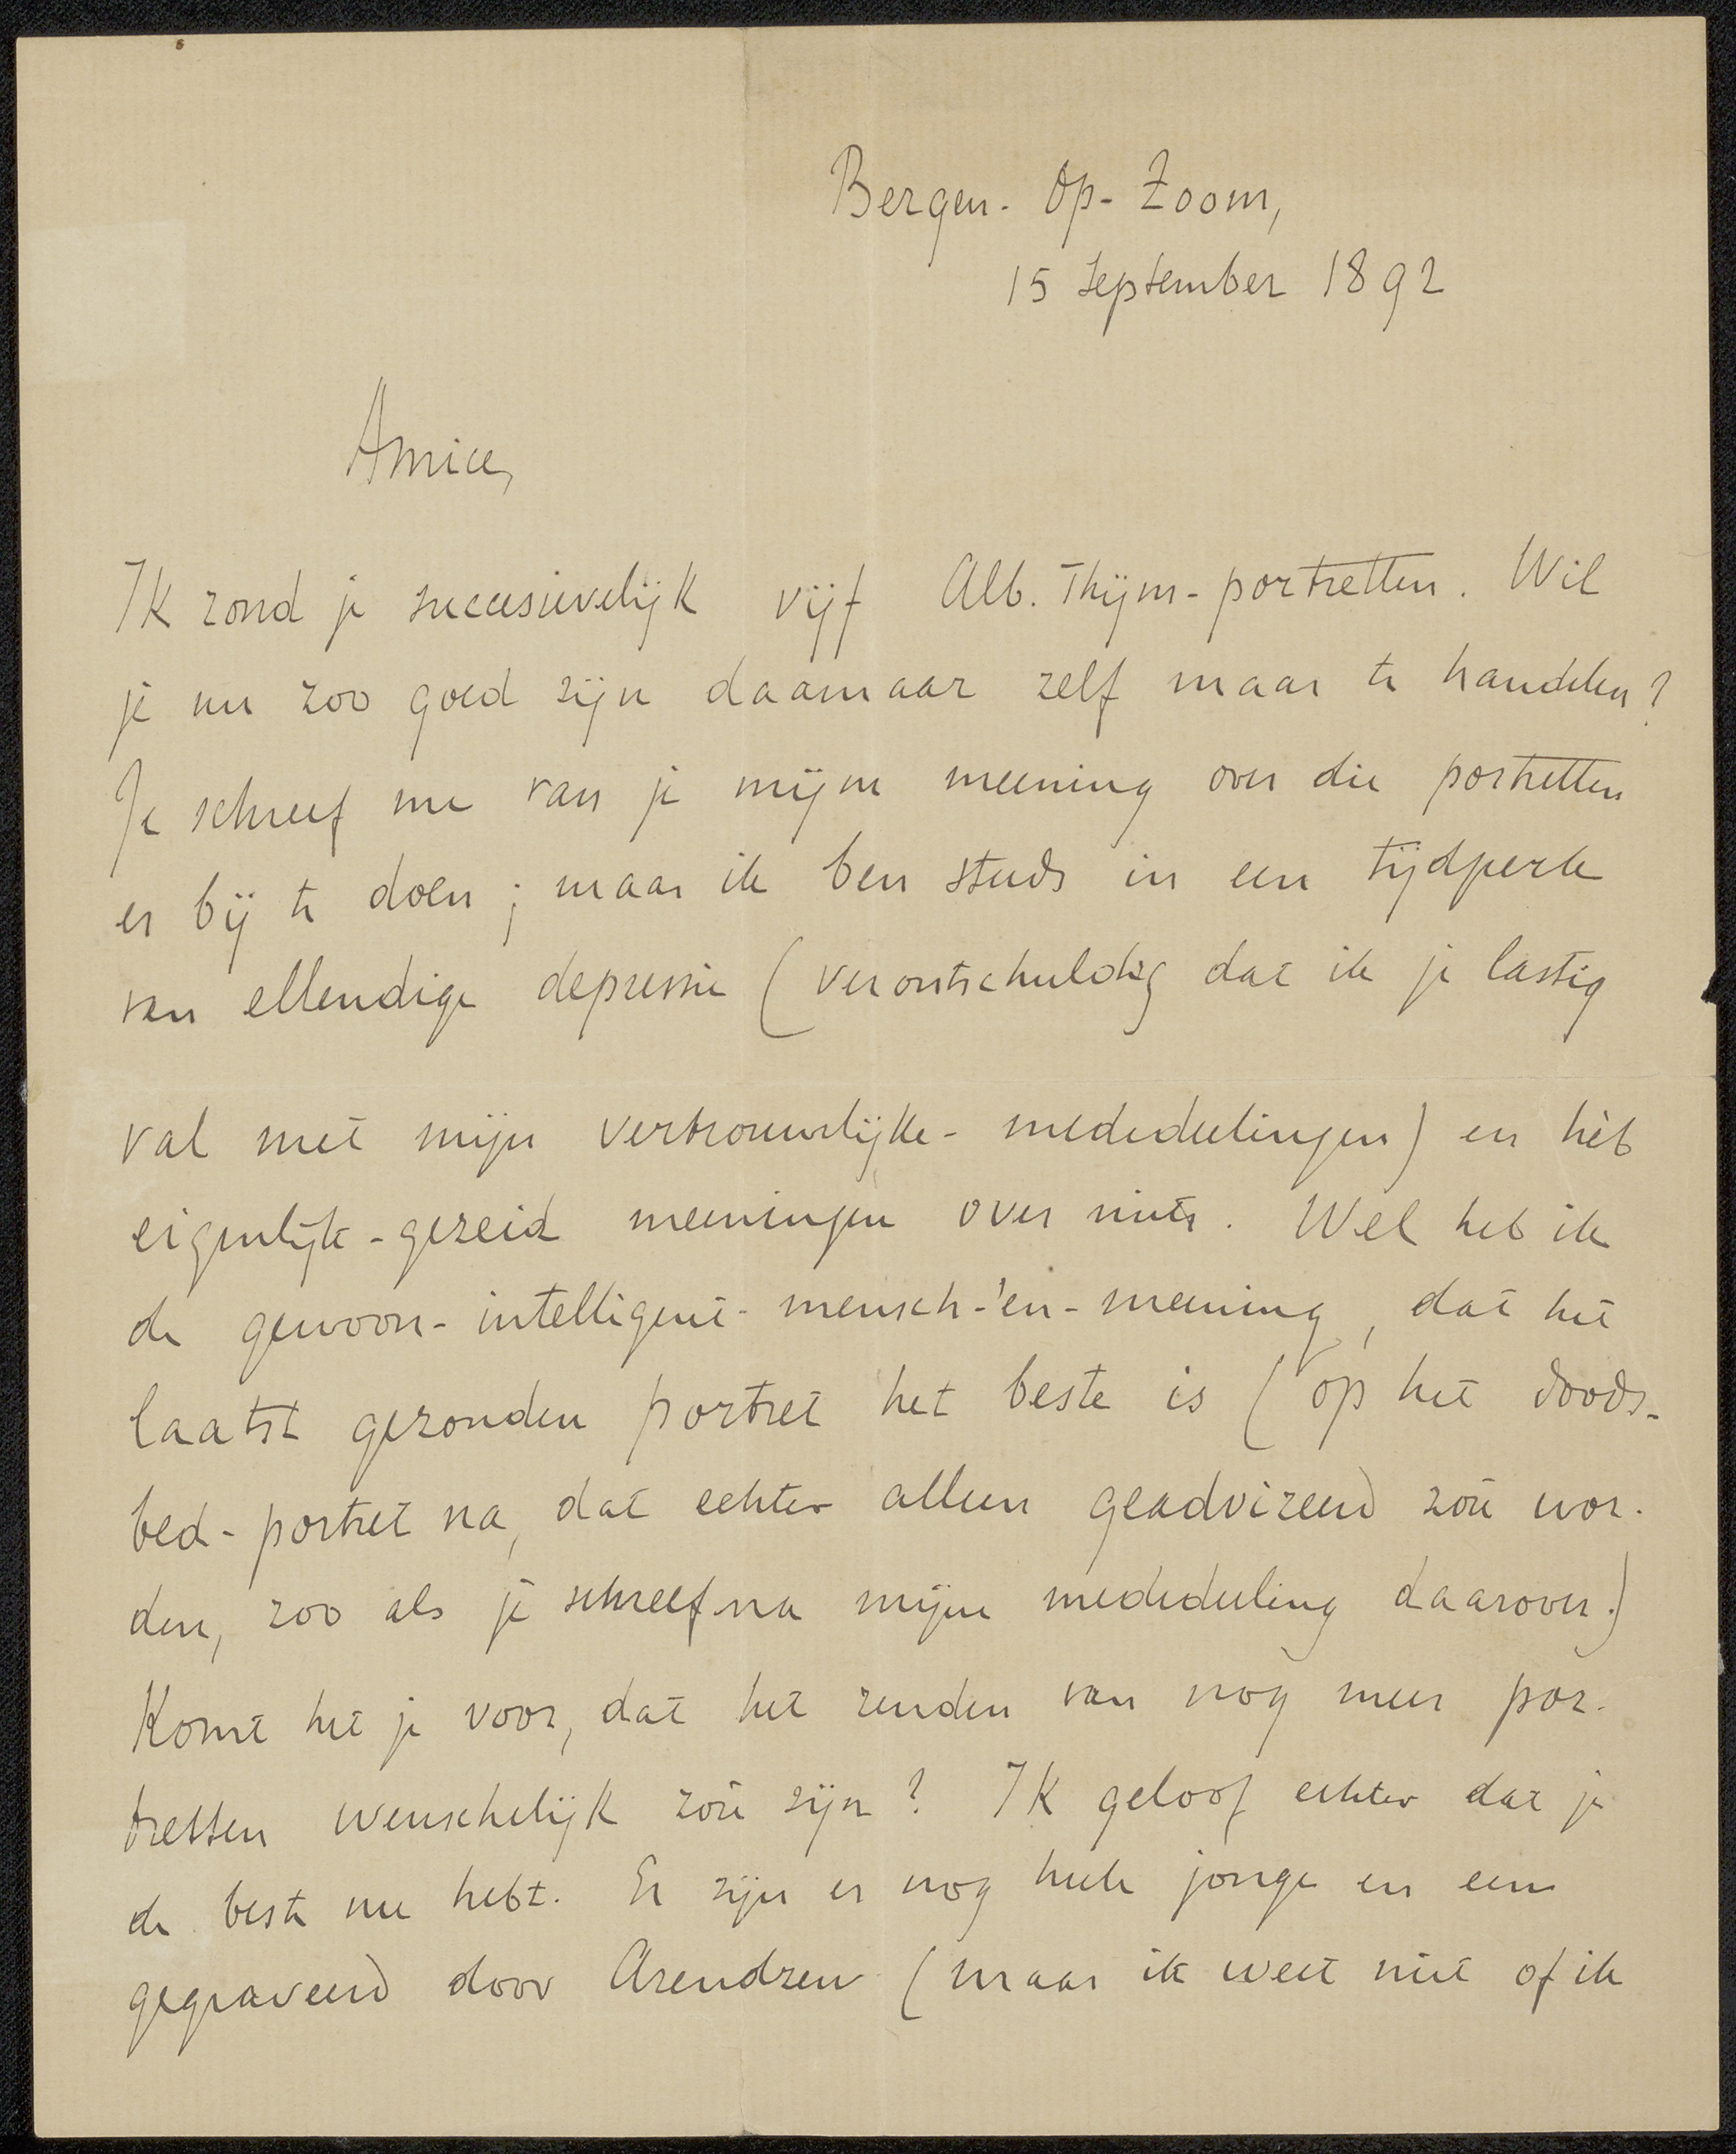 Bergen-op-Zoom,
15 September 1892
Amice,
Ik zond je successievelijk vijf Alb. Thijm-portretten. Wil
je nu zoo goed zijn daarnaar zelf maar te handelen?
Je schreef me van je mijne meening over die portretten
er bij te doen; maar ik ben steeds in een tijdperk
van ellendige depressie (verontschuldig dat ik je lastig
val met mijn vertrouwelijke-mededeelingen) en hèb
eigenlijk-gezeid meeningen over niets. Wel heb ik
de gewoon-intelligent-mensch-'en-meening, dat het
laatst gezonden portret het beste is (op het doods-
bed-portret na, dat echter alleen geadvizeerd zoû wor-
den, zoo als je schreef na mijne mededeeling daarover.)
Komt het je voor, dat het zenden van nog meer por-
tretten wenschelijk zoû zijn? Ik geloof echter dat je
de beste nu hebt. Er zijn er nog heele jonge en een
gegraveerd door Arendzen (maar ik weet niet of ik